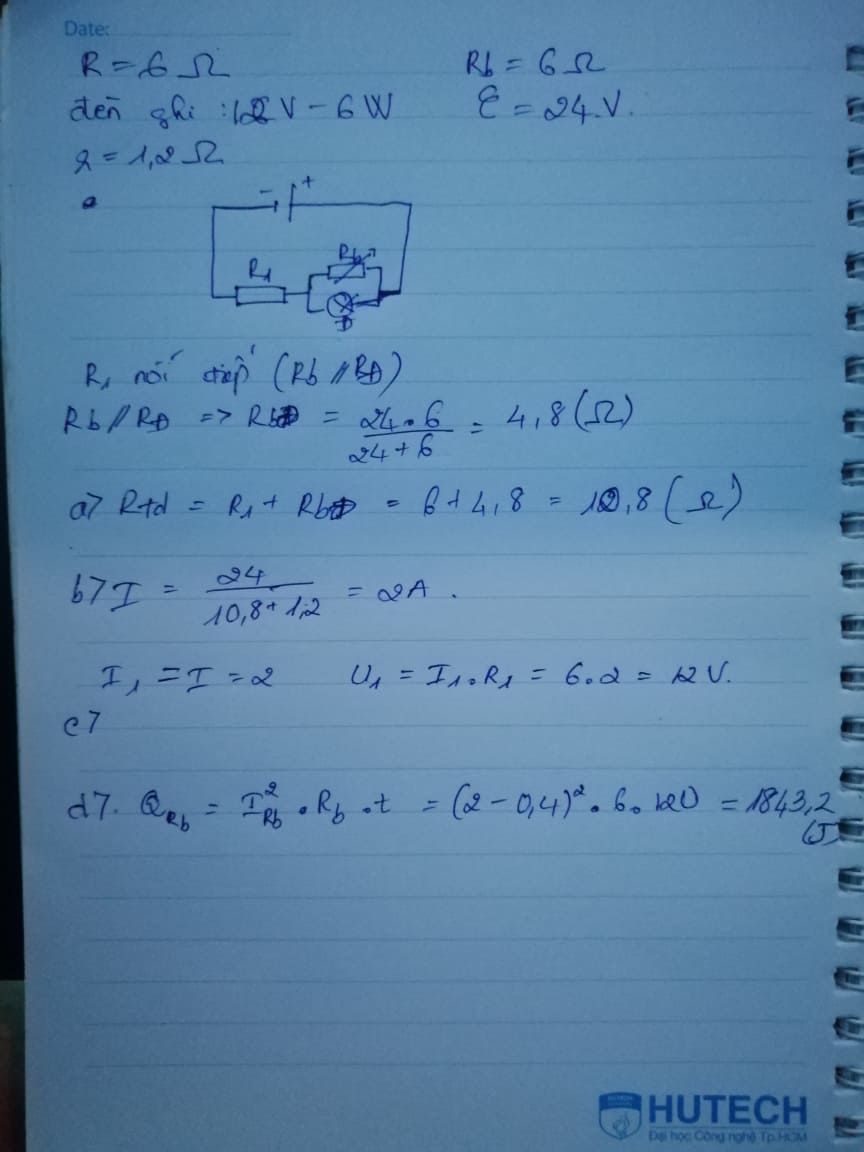 Date:
R = 6 Ω Rb = 6 Ω
đèn ghi : 12 V - 6 W ℰ = 24 V.
r = 1,2 Ω
- +
R1 Rb
Đ
R1 nối tiếp (Rb // RĐ)
Rb // RĐ => RbĐ = 24.6 / 24 + 6 = 4,8 (Ω)
a> Rtđ = R1 + RbĐ = 6 + 4,8 = 10,8 (Ω)
b> I = 24 / 10,8 + 1,2 = 2A .
I1 = I = 2 U1 = I1.R1 = 6.2 = 12 V.
c>
d>. QRb = I²Rb . Rb . t = (2 - 0,4)² . 6. 120 = 1843,2 (J)
HUTECH
Đại học Công nghệ Tp.HCM